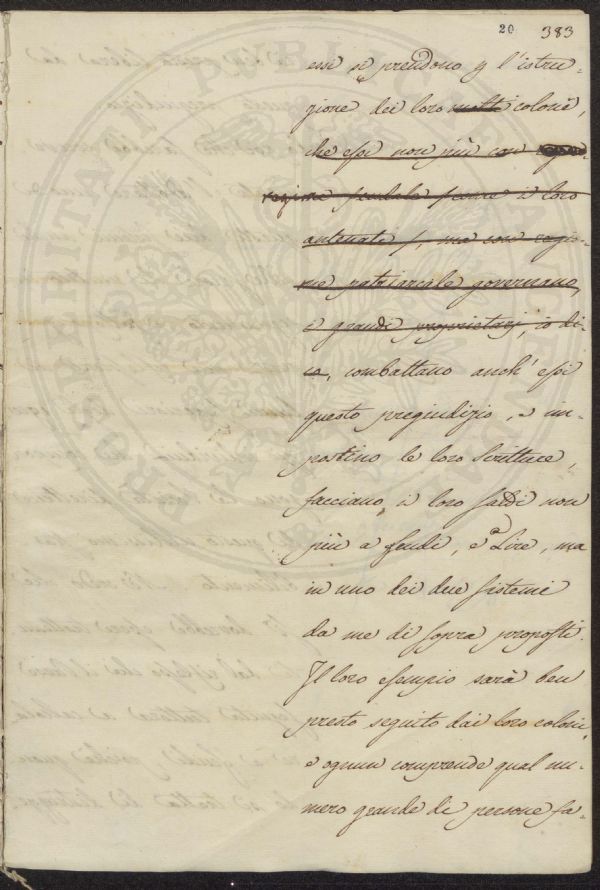 20 383
essi si prendono p l'istru-
zione dei loro molti coloni,
che essi non più con
regime feudale siccome i loro
antenati, ma con regi-
me patriarcale governano,
i grandi proprietarj, io di-
co, combattano anch' essi
questo pregiudizio, e im-
postino le loro scritture,
facciano i loro saldi non
più a scudi, e a Lire, ma
in uno dei due sistemi
da me di sopra proposti.
Il loro esempio sarà ben
presto seguito dai loro coloni,
e ognun comprende qual nu-
mero grande di persone fa-
PROSPERITATI PVBLICAE